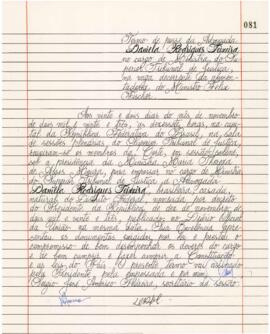 081
Termo de posse da Advogada
Daniela Rodrigues Teixeira
no cargo de Ministra do Su-
perior Tribunal de Justiça,
na vaga decorrente da aposen-
tadoria do Ministro Felix
Fischer.
Aos vinte e dois dias do mês de novembro
de dois mil e vinte e três, às dezessete horas, na capi-
tal da República Federativa do Brasil, na sala
de sessões plenárias do Superior Tribunal de Justiça,
reuniram-se os membros da Corte, em sessão solene,
sob a presidência da Ministra Maria Thereza
de Assis Moura, para empossar no cargo de Ministra
do Superior Tribunal de Justiça a Advogada
Daniela Rodrigues Teixeira, brasileira,
natural do Distrito Federal, nomeada por decreto
do Presidente da República, de de novembro de
dois mil e vinte e três, publicado no Diário Oficial
da União na mesma data. Sua Excelência apre-
sentou os documentos exigidos por lei e prestou o
compromisso de bem desempenhar os deveres do cargo
e de bem cumprir e fazer cumprir a Constituição
e as leis do País. O presente termo vai assinado
pela Presidente, pela empossada e por mim,
José Américo secretário da sessão.